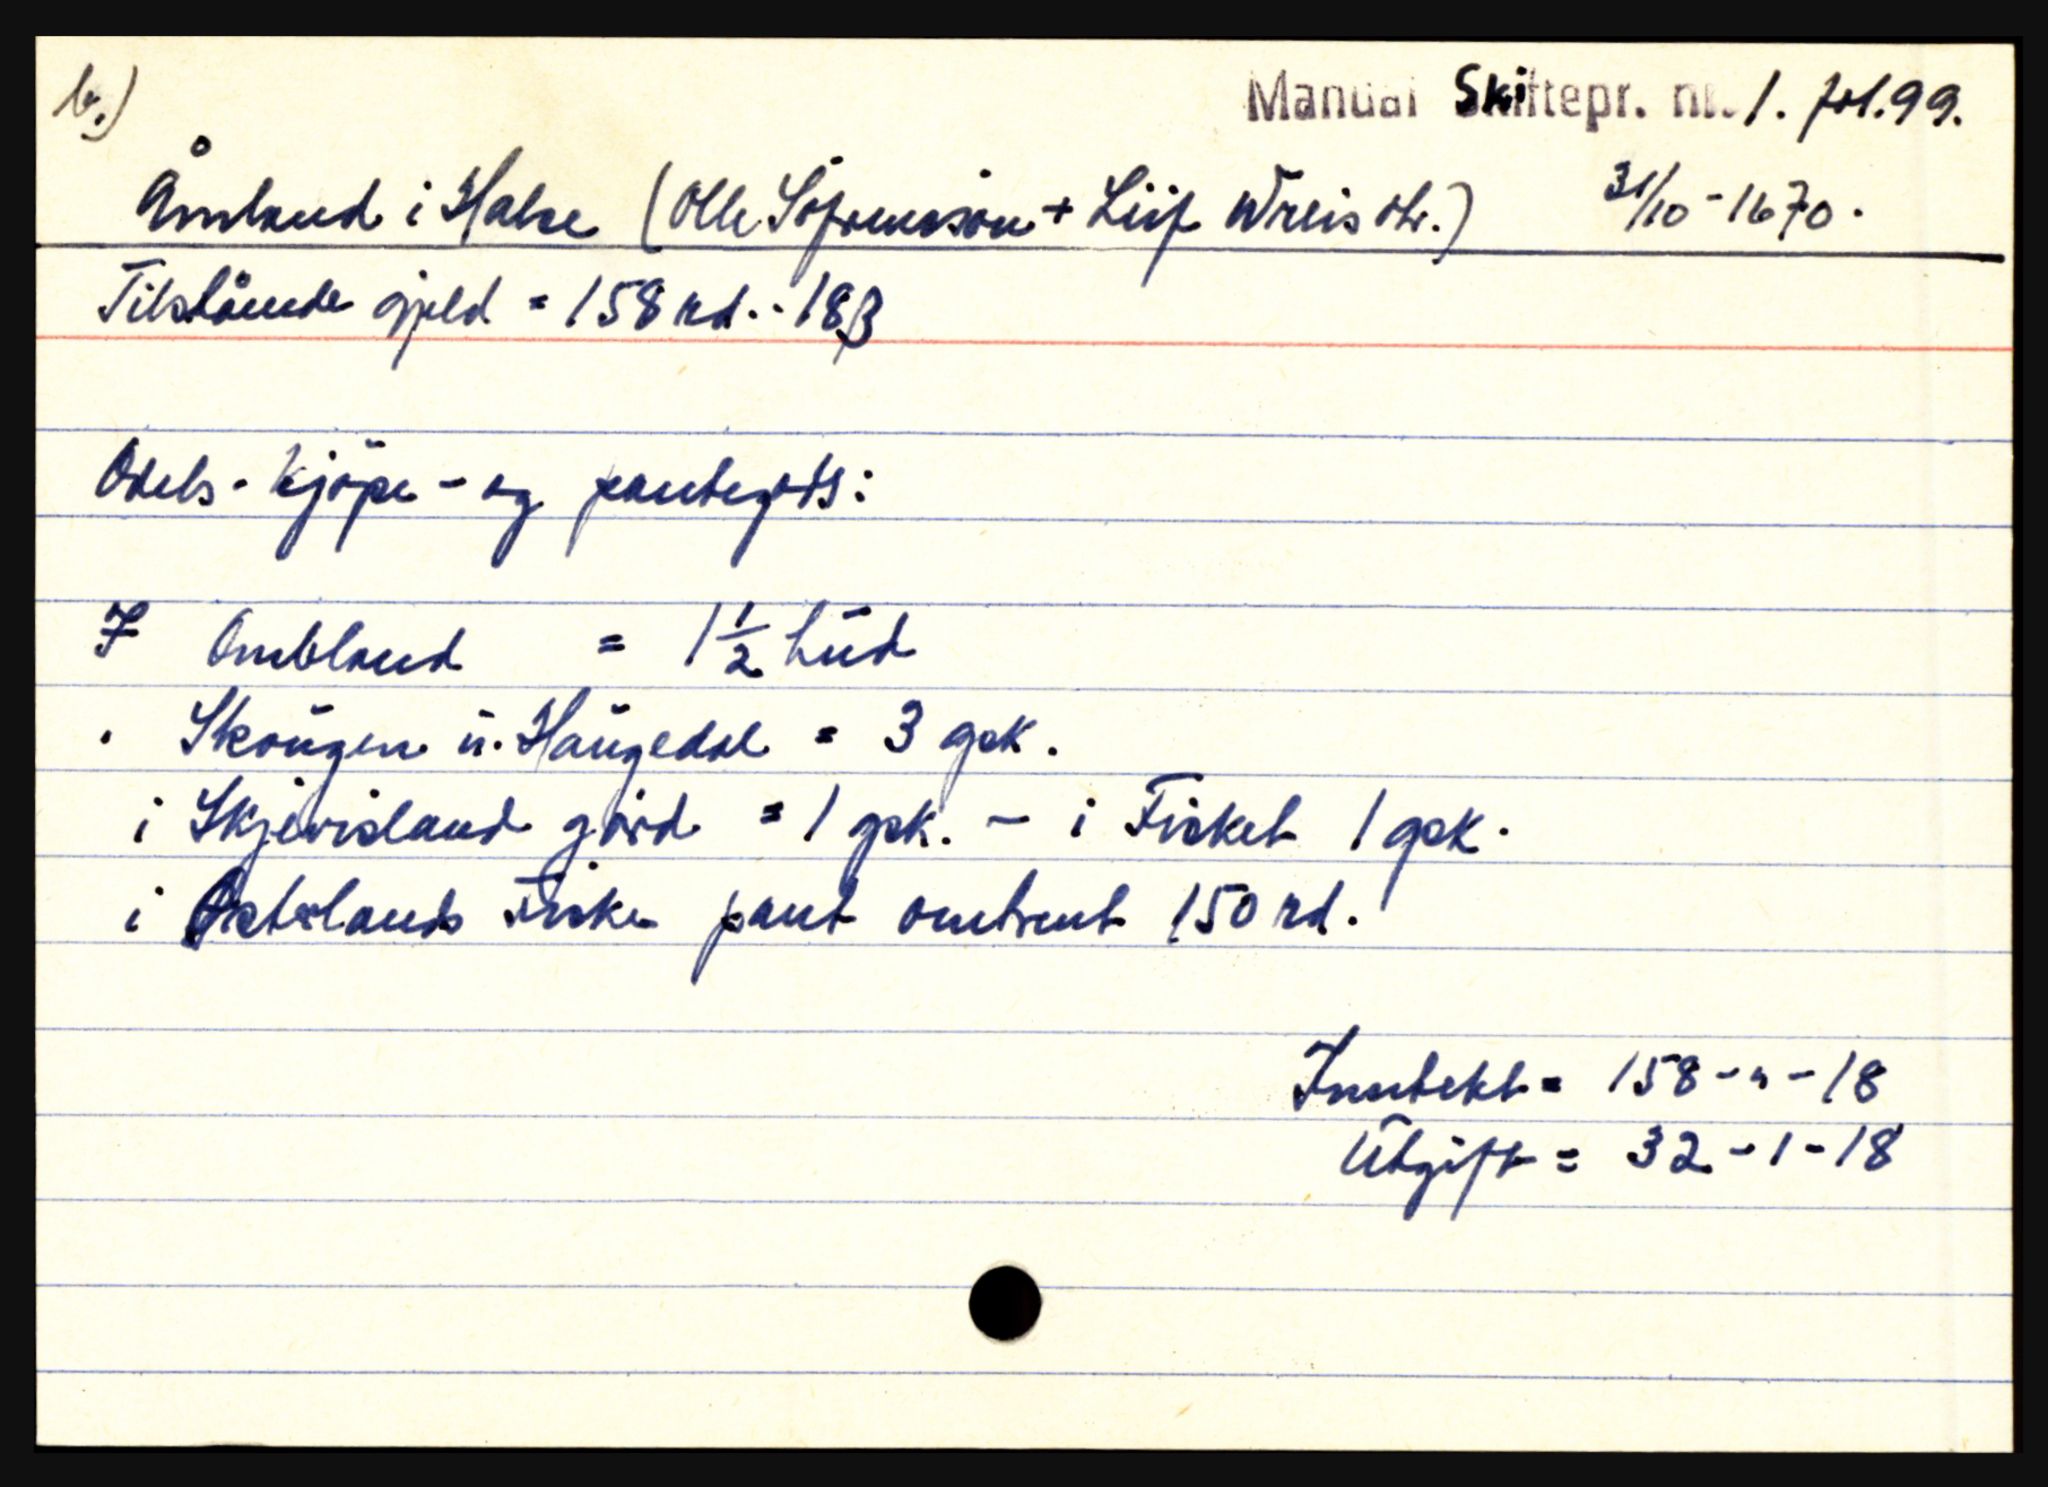 b.)
Manual Skiftepr. nr. 1. fol. 99.
Åmland i Halse (Olle Sofrenssön + Liif Wreis dtr.) 31/10 - 1670.
Tilstånde gjeld = 158 rd. - 18 β
Odels - kjöpe - og pantegods:
I Ombland = 1 1/2 hud
. Skougen u. Haugedal = 3 gsk.
i Skjevisland gård = 1 gsk. - i Fisket 1 gsk.
i Østerlands Fiske pant omtrent 150 rd.
Inntekt = 158 - " - 18
Utgift = 32 - 1 - 18